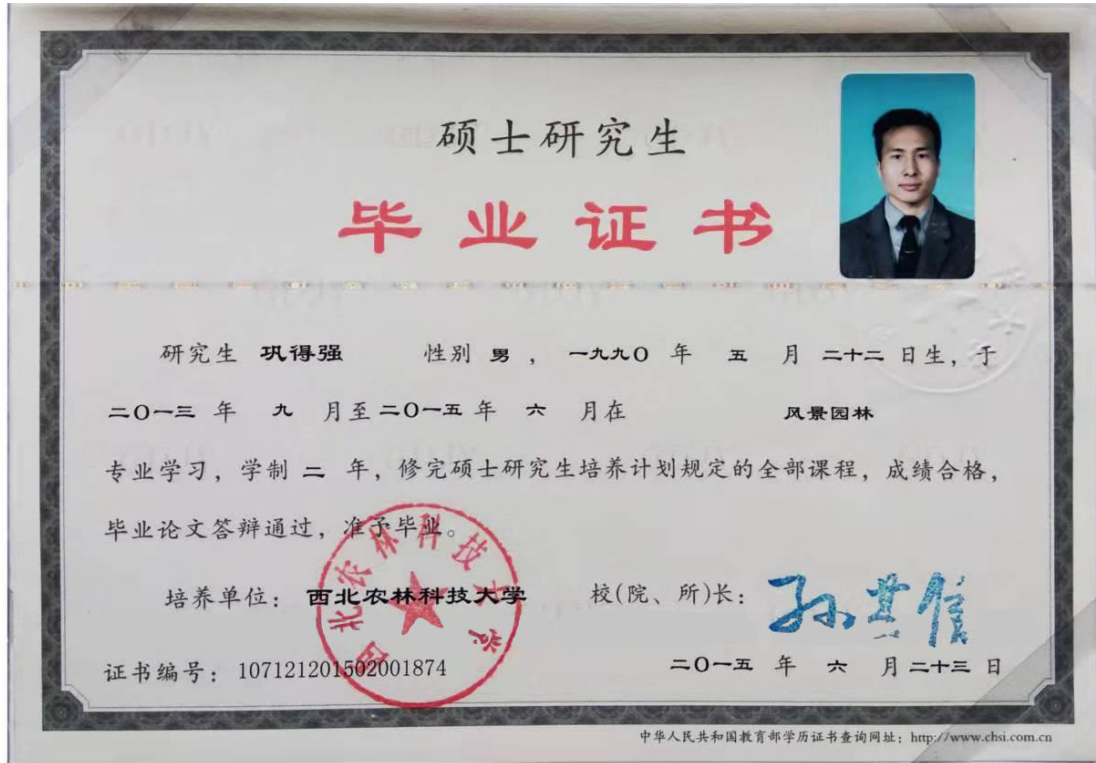 硕士研究生
毕业证书
研究生 巩得强 性别 男 , 一九九〇 年 五 月 二十二 日生, 于
二〇一三 年 九 月至 二〇一五 年 六 月在 风景园林
专业学习, 学制 二 年, 修完硕士研究生培养计划规定的全部课程, 成绩合格,
毕业论文答辩通过, 准予毕业。
培养单位: 西北农林科技大学 校(院、所)长: 孙其信
西北农林科技大学
证书编号: 107121201502001874 二〇一五 年 六 月 二十三 日
中华人民共和国教育部学历证书查询网址: http://www.chsi.com.cn